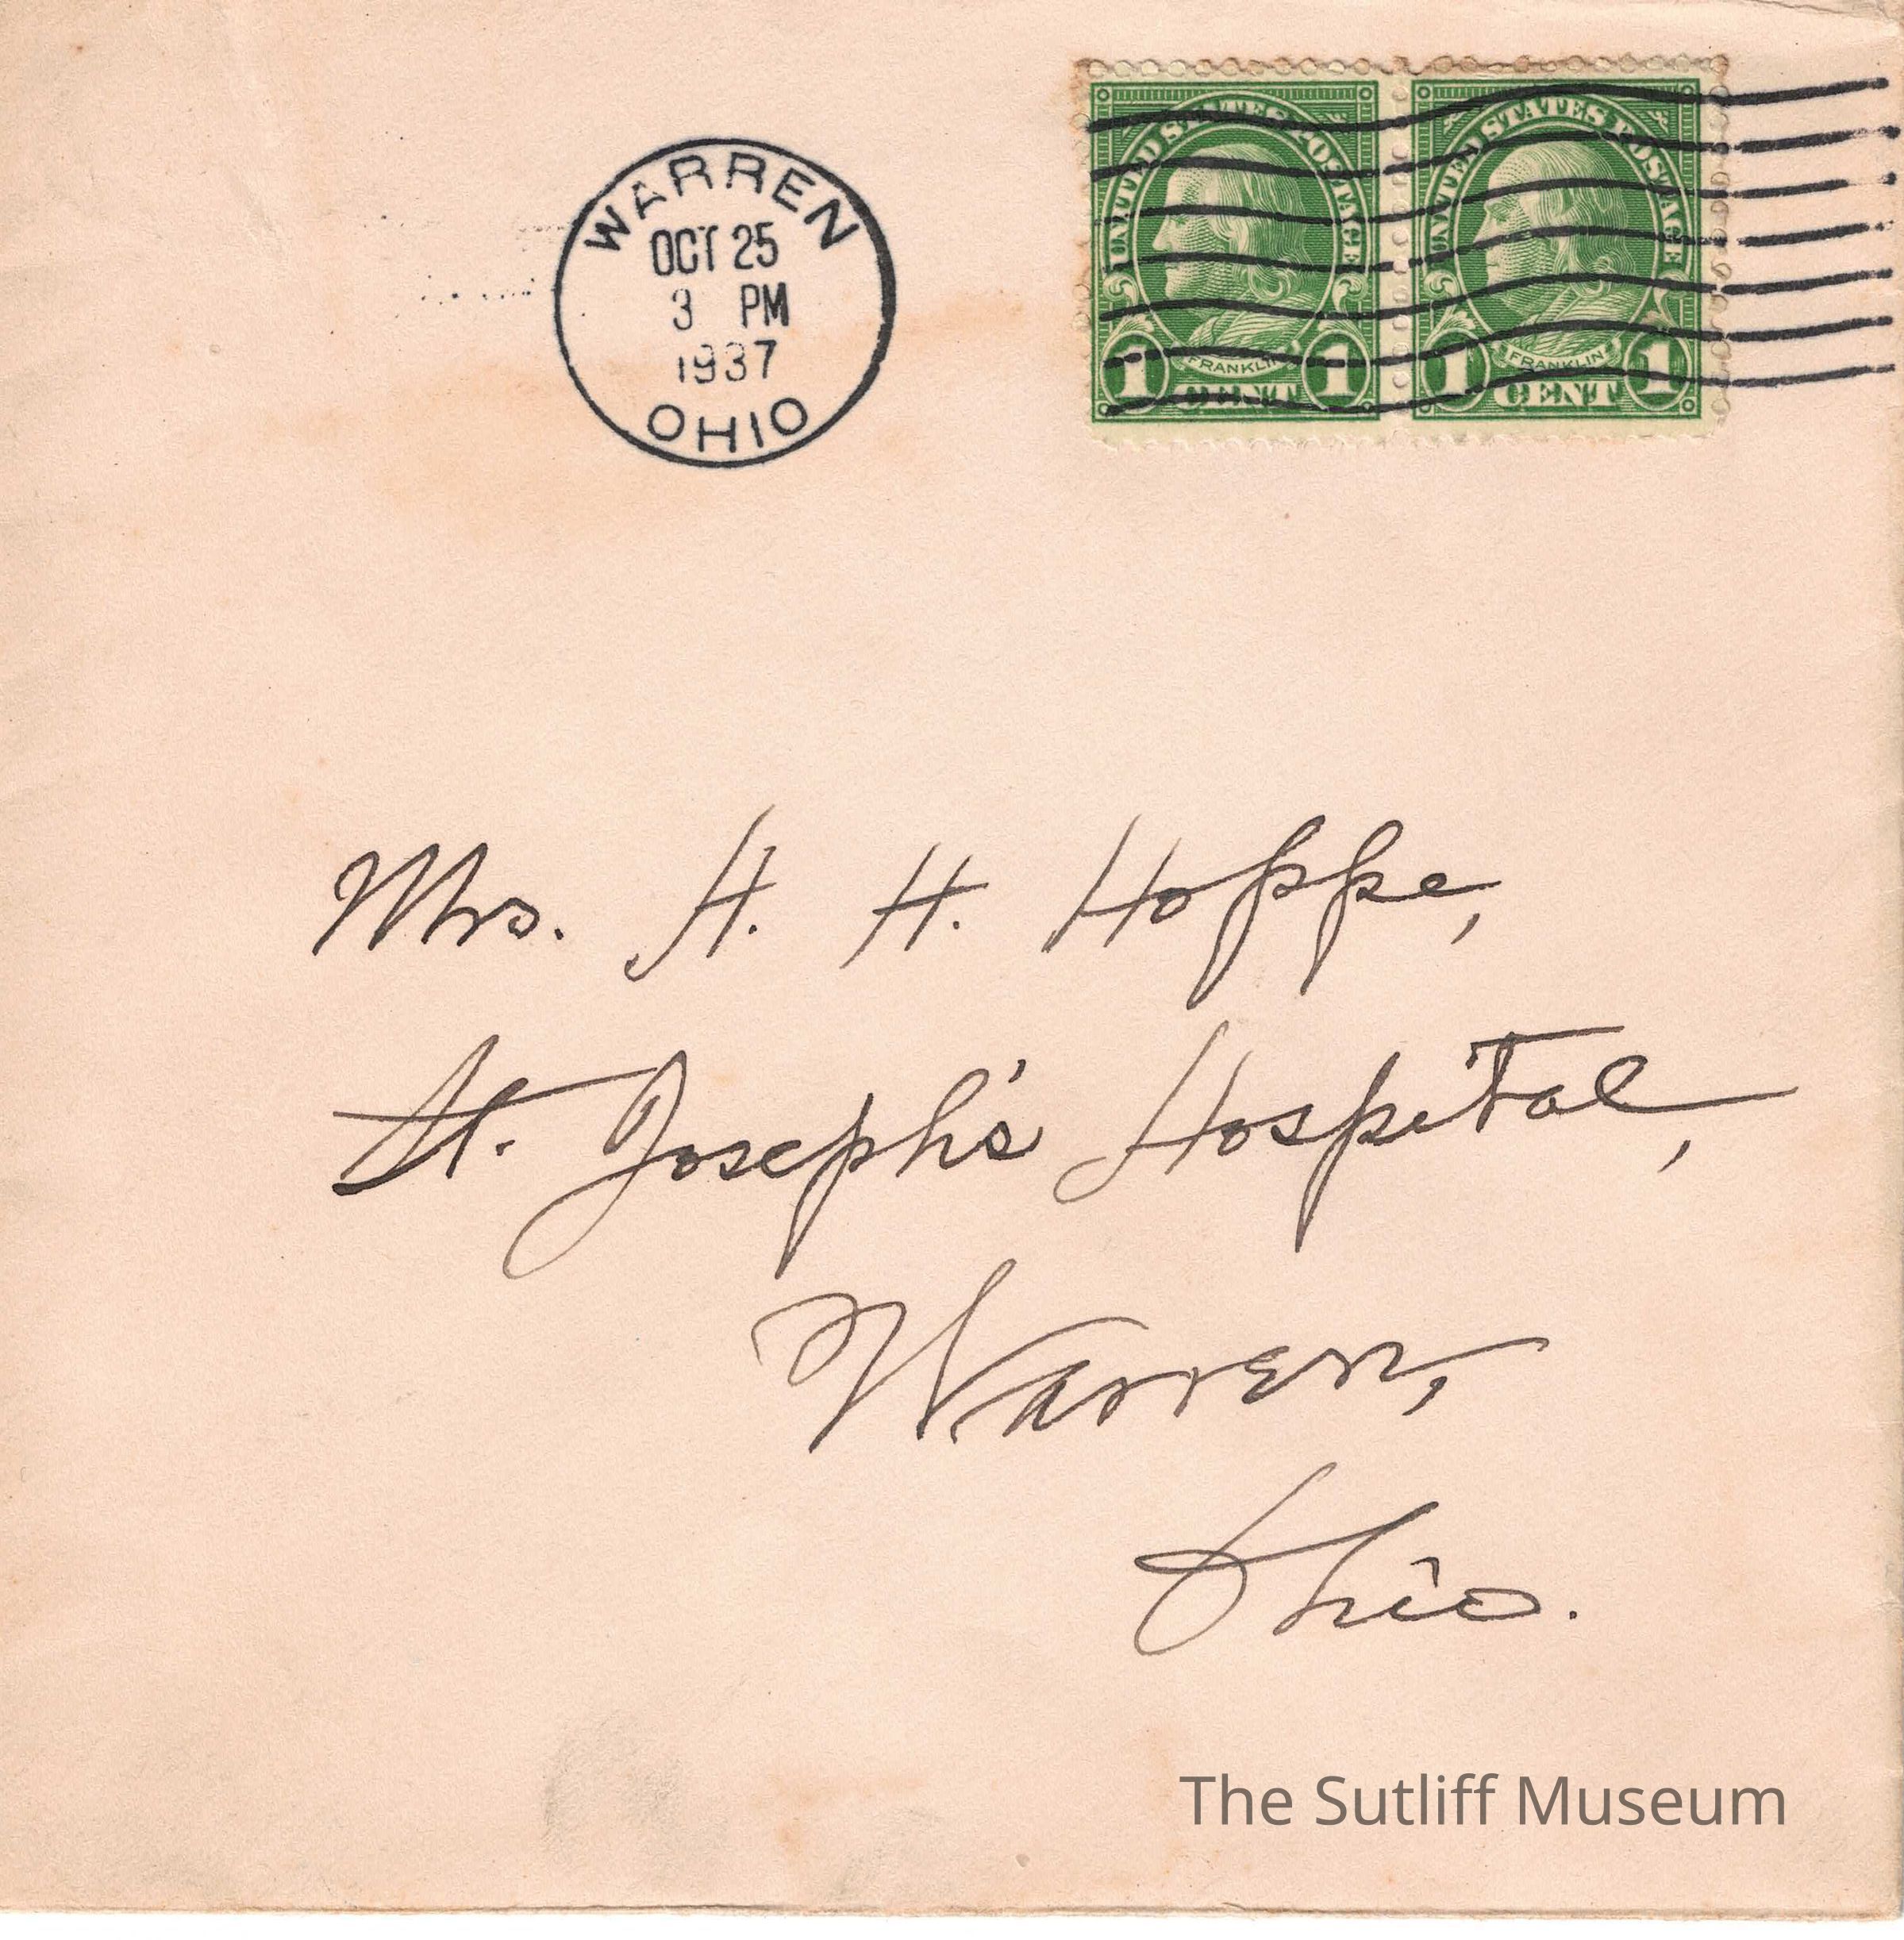 WARREN
OCT 25
3 PM
1937
OHIO
UNITED STATES POSTAGE
FRANKLIN
1 CENT 1
UNITED STATES POSTAGE
FRANKLIN
1 CENT 1
Mrs. H. H. Hoppe,
St. Joseph's Hospital,
Warren,
Ohio.
The Sutliff Museum